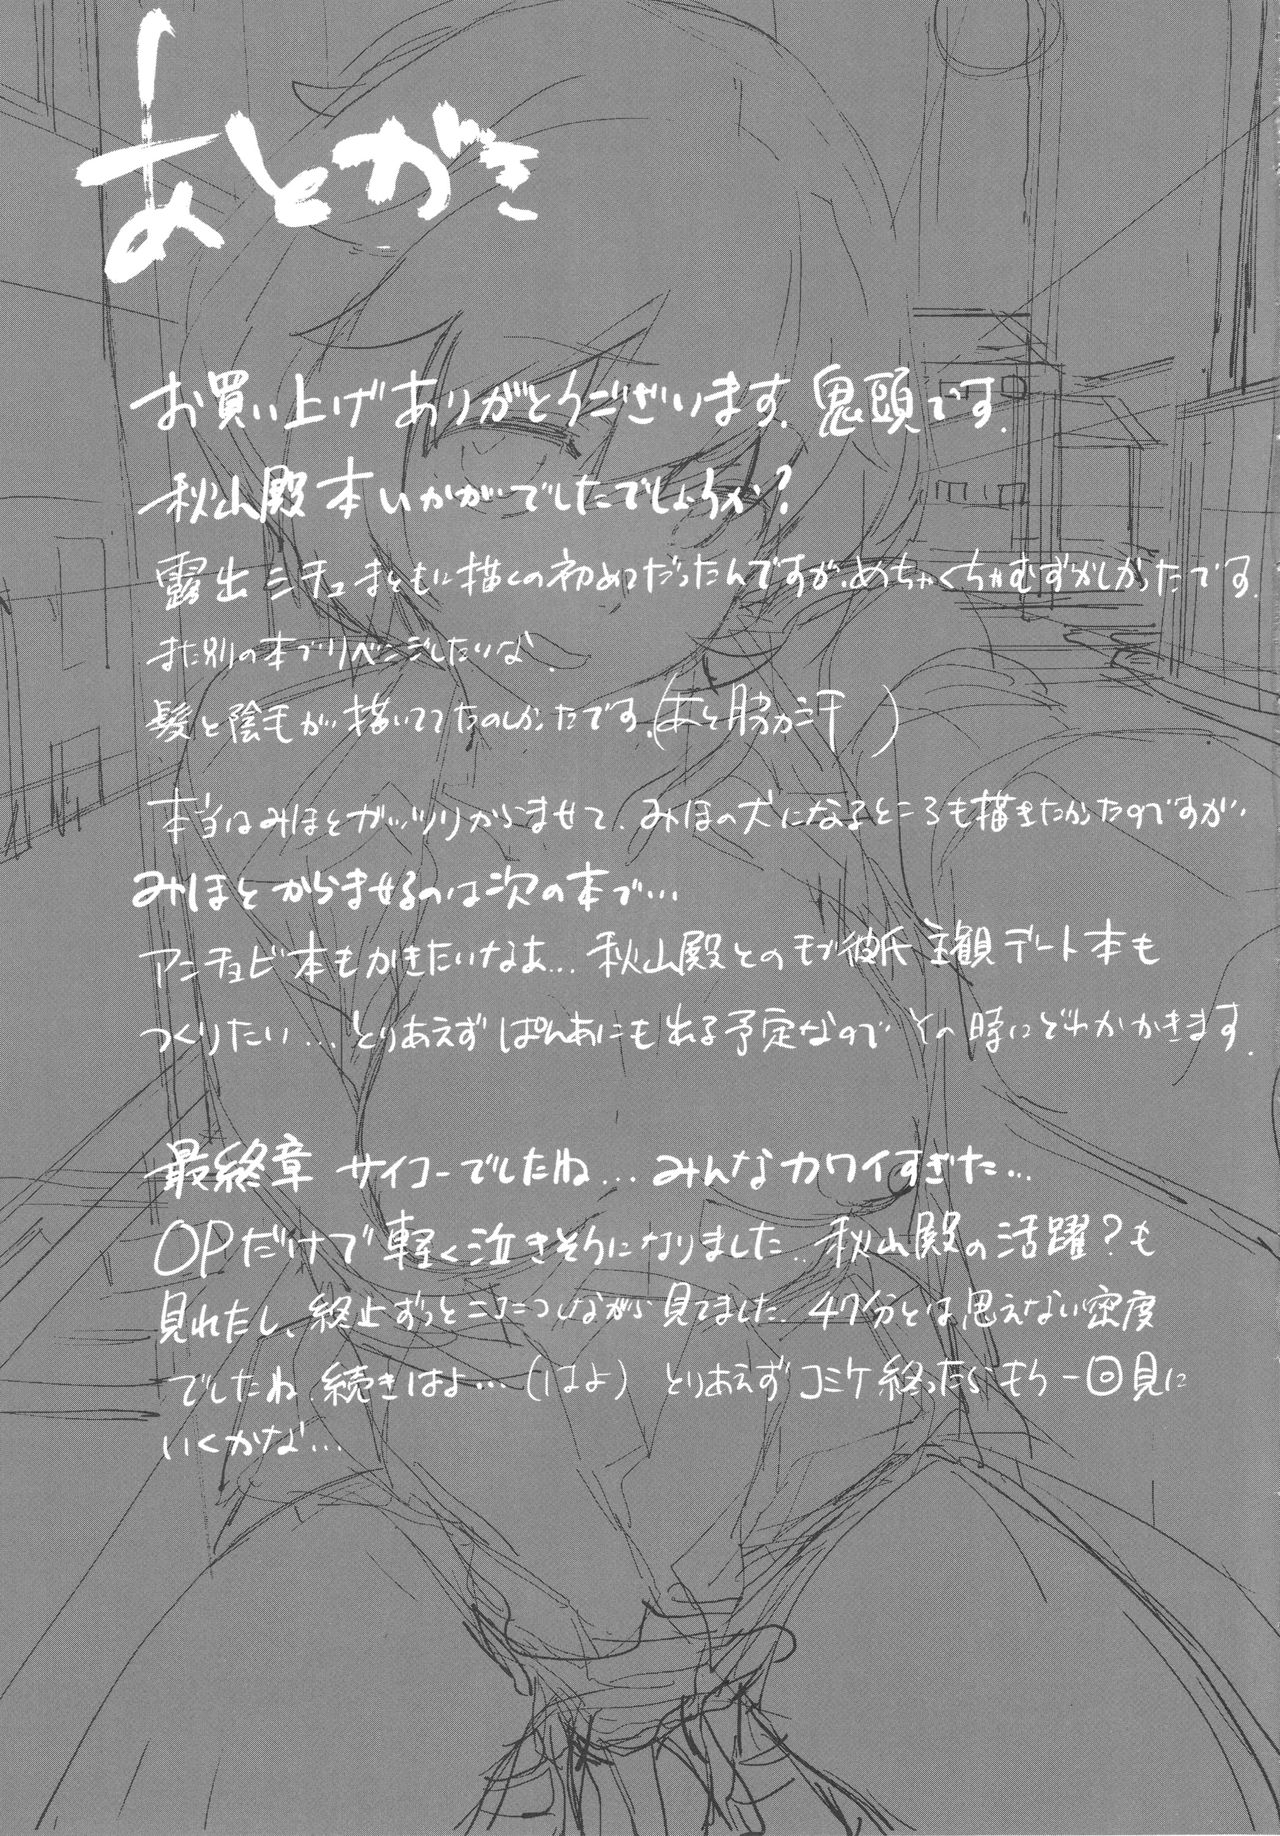 あとがき
お買い上げありがとうございます。鬼頭です。
秋山殿本いかがでしたでしょうか?
露出シチュまともに描くの初めてだったんですが、めちゃくちゃむずかしかったです。
また別の本でリベンジしたいな。
髪と陰毛が描いててたのしかったです。(あと脇か汗)
本当はみほとガッツリからませて、みほの犬になるところも描きたかったのですが、
みほとからませるのは次の本で…
アンチョビ本もかきたいなぁ…秋山殿とのモブ彼氏主観デート本も
つくりたい…とりあえずぱんあにも出る予定なのでその時にどれかかきます。
最終章サイコーでしたね…みんなカワイすぎた…
OPだけで軽く泣きそうになりました..秋山殿の活躍?も
見れたし、終止ずっとニコニコしながら見てました。47分とは思えない密度
でしたね。続きはよ…(はよ) とりあえずコミケ終ったらもう一回見に
いくかな…